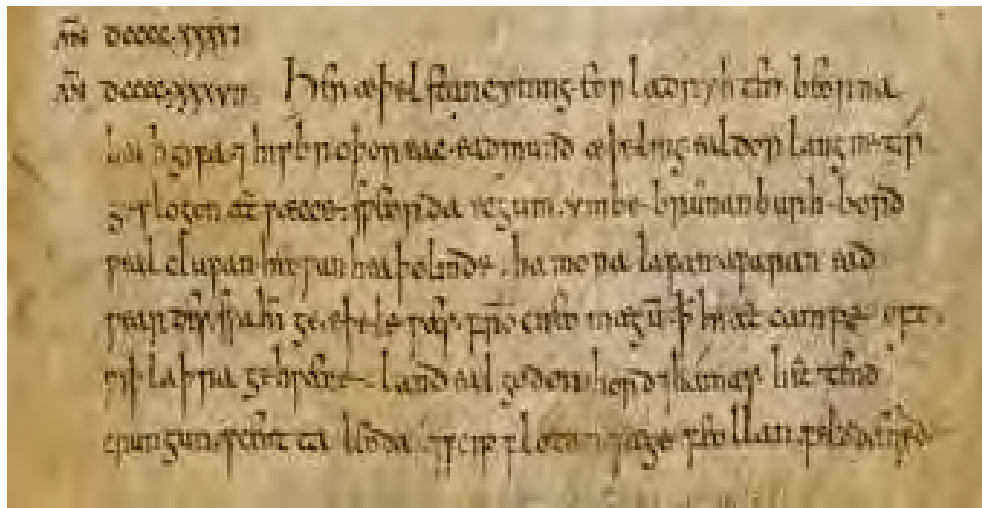 AÑ DCCCC.XXXVI
AÑ DCCCC.XXXVII. Her æþelstan cyning. eorla dryhten. beorna
beahgifa. ⁊ his broþor eac. eadmund æþeling. ealdor langne tir.
geslogon æt sæcce. sƿeorda ecgum. ymbe brunanburh. bord
ƿeal clufan. heoƿan heaþolinde. hamora lafan. afaran ead
ƿeardes. sƿa him geæþele ƿæs. frō cneomægū ꝥ hi æt campe oft.
ƿiþ laþra gehƿæne. land ealgodon. hord ⁊ hamas. hettend
crungun. sceotta leoda. ⁊ scip flotan. fæge feollan. feld